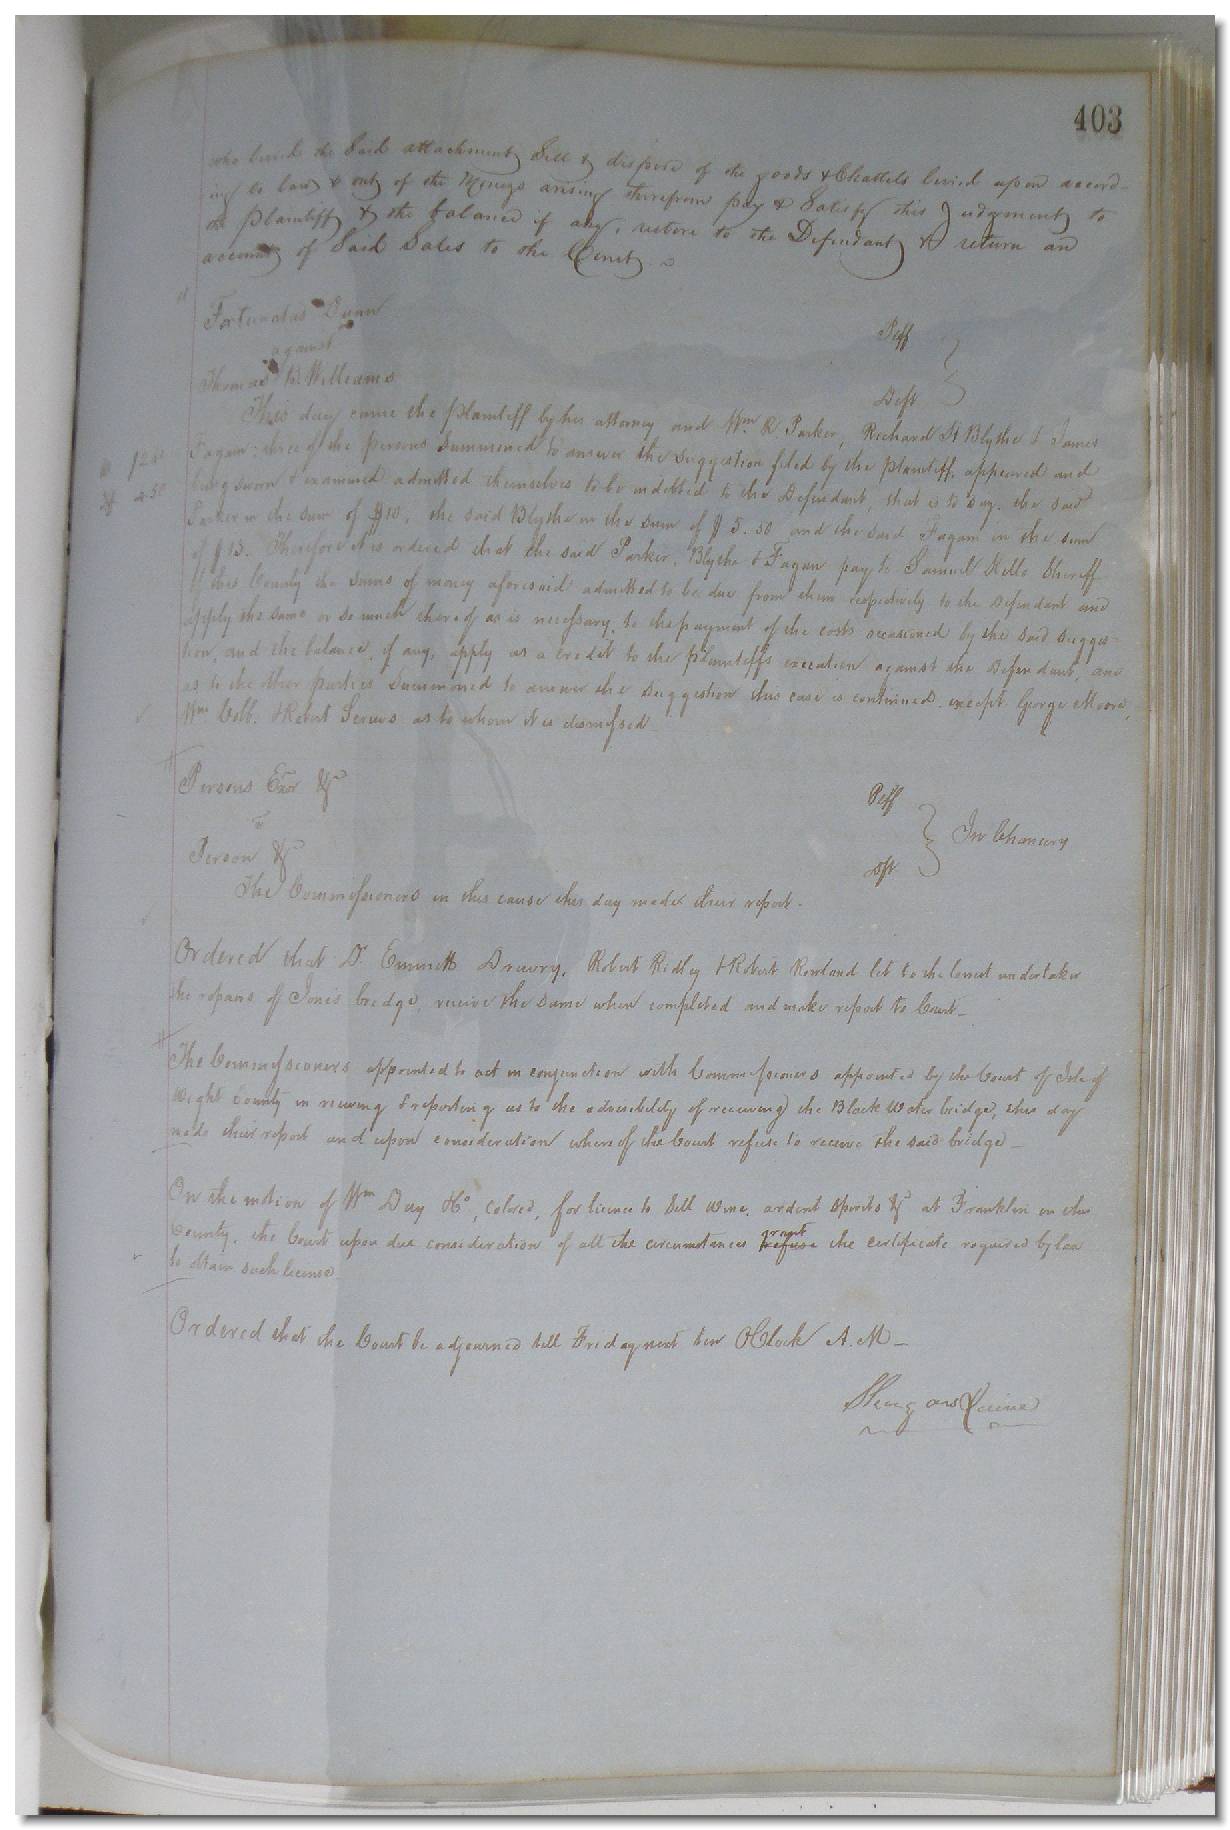 403
who levied the Said attachment Sell & dispose of the goods & Chattels levied upon accord-
ing to law & out of the Moneys arising therefrom pay & Satisfy this Judgment to
the Plaintiff & the balance if any, restore to the Defendant & return an
account of Said Sales to the Court.
Fortunatus Gunn Plff
against
Thomas B. Williams Deft
This day came the plaintiff by his attorney and Wm R Parker, Richard H Blythe & James
Fagan, three of the persons Summoned to answer the Suggestion filed by the plaintiff, appeared and
being sworn & examined admitted themselves to be indebted to the Defendant, that is to say, the said
Parker in the sum of $10, the said Blythe in the sum of $5.50 and the said Fagan in the sum
of $13. Therefore it is ordered that the said Parker, Blythe & Fagan pay to Samuel Kello Sheriff
of this County the sums of money aforesaid admitted to be due from them respectively to the Defendant and
apply the same or so much thereof as is necessary, to the payment of the costs occasioned by the said sugges-
tion, and the balance, if any, apply as a credit to the plaintiff's execution against the Defendant, and
as to the other parties Summoned to answer the suggestion this case is continued, except George Moore,
Wm Cobb, & Robert as to whom it is dismissed
Persons Exor &c Plff
v In Chancery
Person &c Dft
The Commissioners in this cause this day made their report.
Ordered that D. Emmett Drewry, Robert Ridley & Robert Rowland let to the lowest undertaker
the repairs of Jones bridge, receive the same when completed and make report to Court_
The Commissioners appointed to act in conjunction with Commissioners appointed by the Court of Isle of
Wight County in viewing & reporting as to the advisibility of receiving the Black Water bridge, this day
made their report and upon consideration whereof the Court refuse to receive the said bridge_
On the motion of Wm Day &Co, colored, for license to Sell wine, ardent spirits &c at Franklin in this
grant
County, the Court upon due consideration of all the circumstances refuse the certificate required by law
to obtain such license
Ordered that the Court be adjourned till Friday next ten OClock A.M_